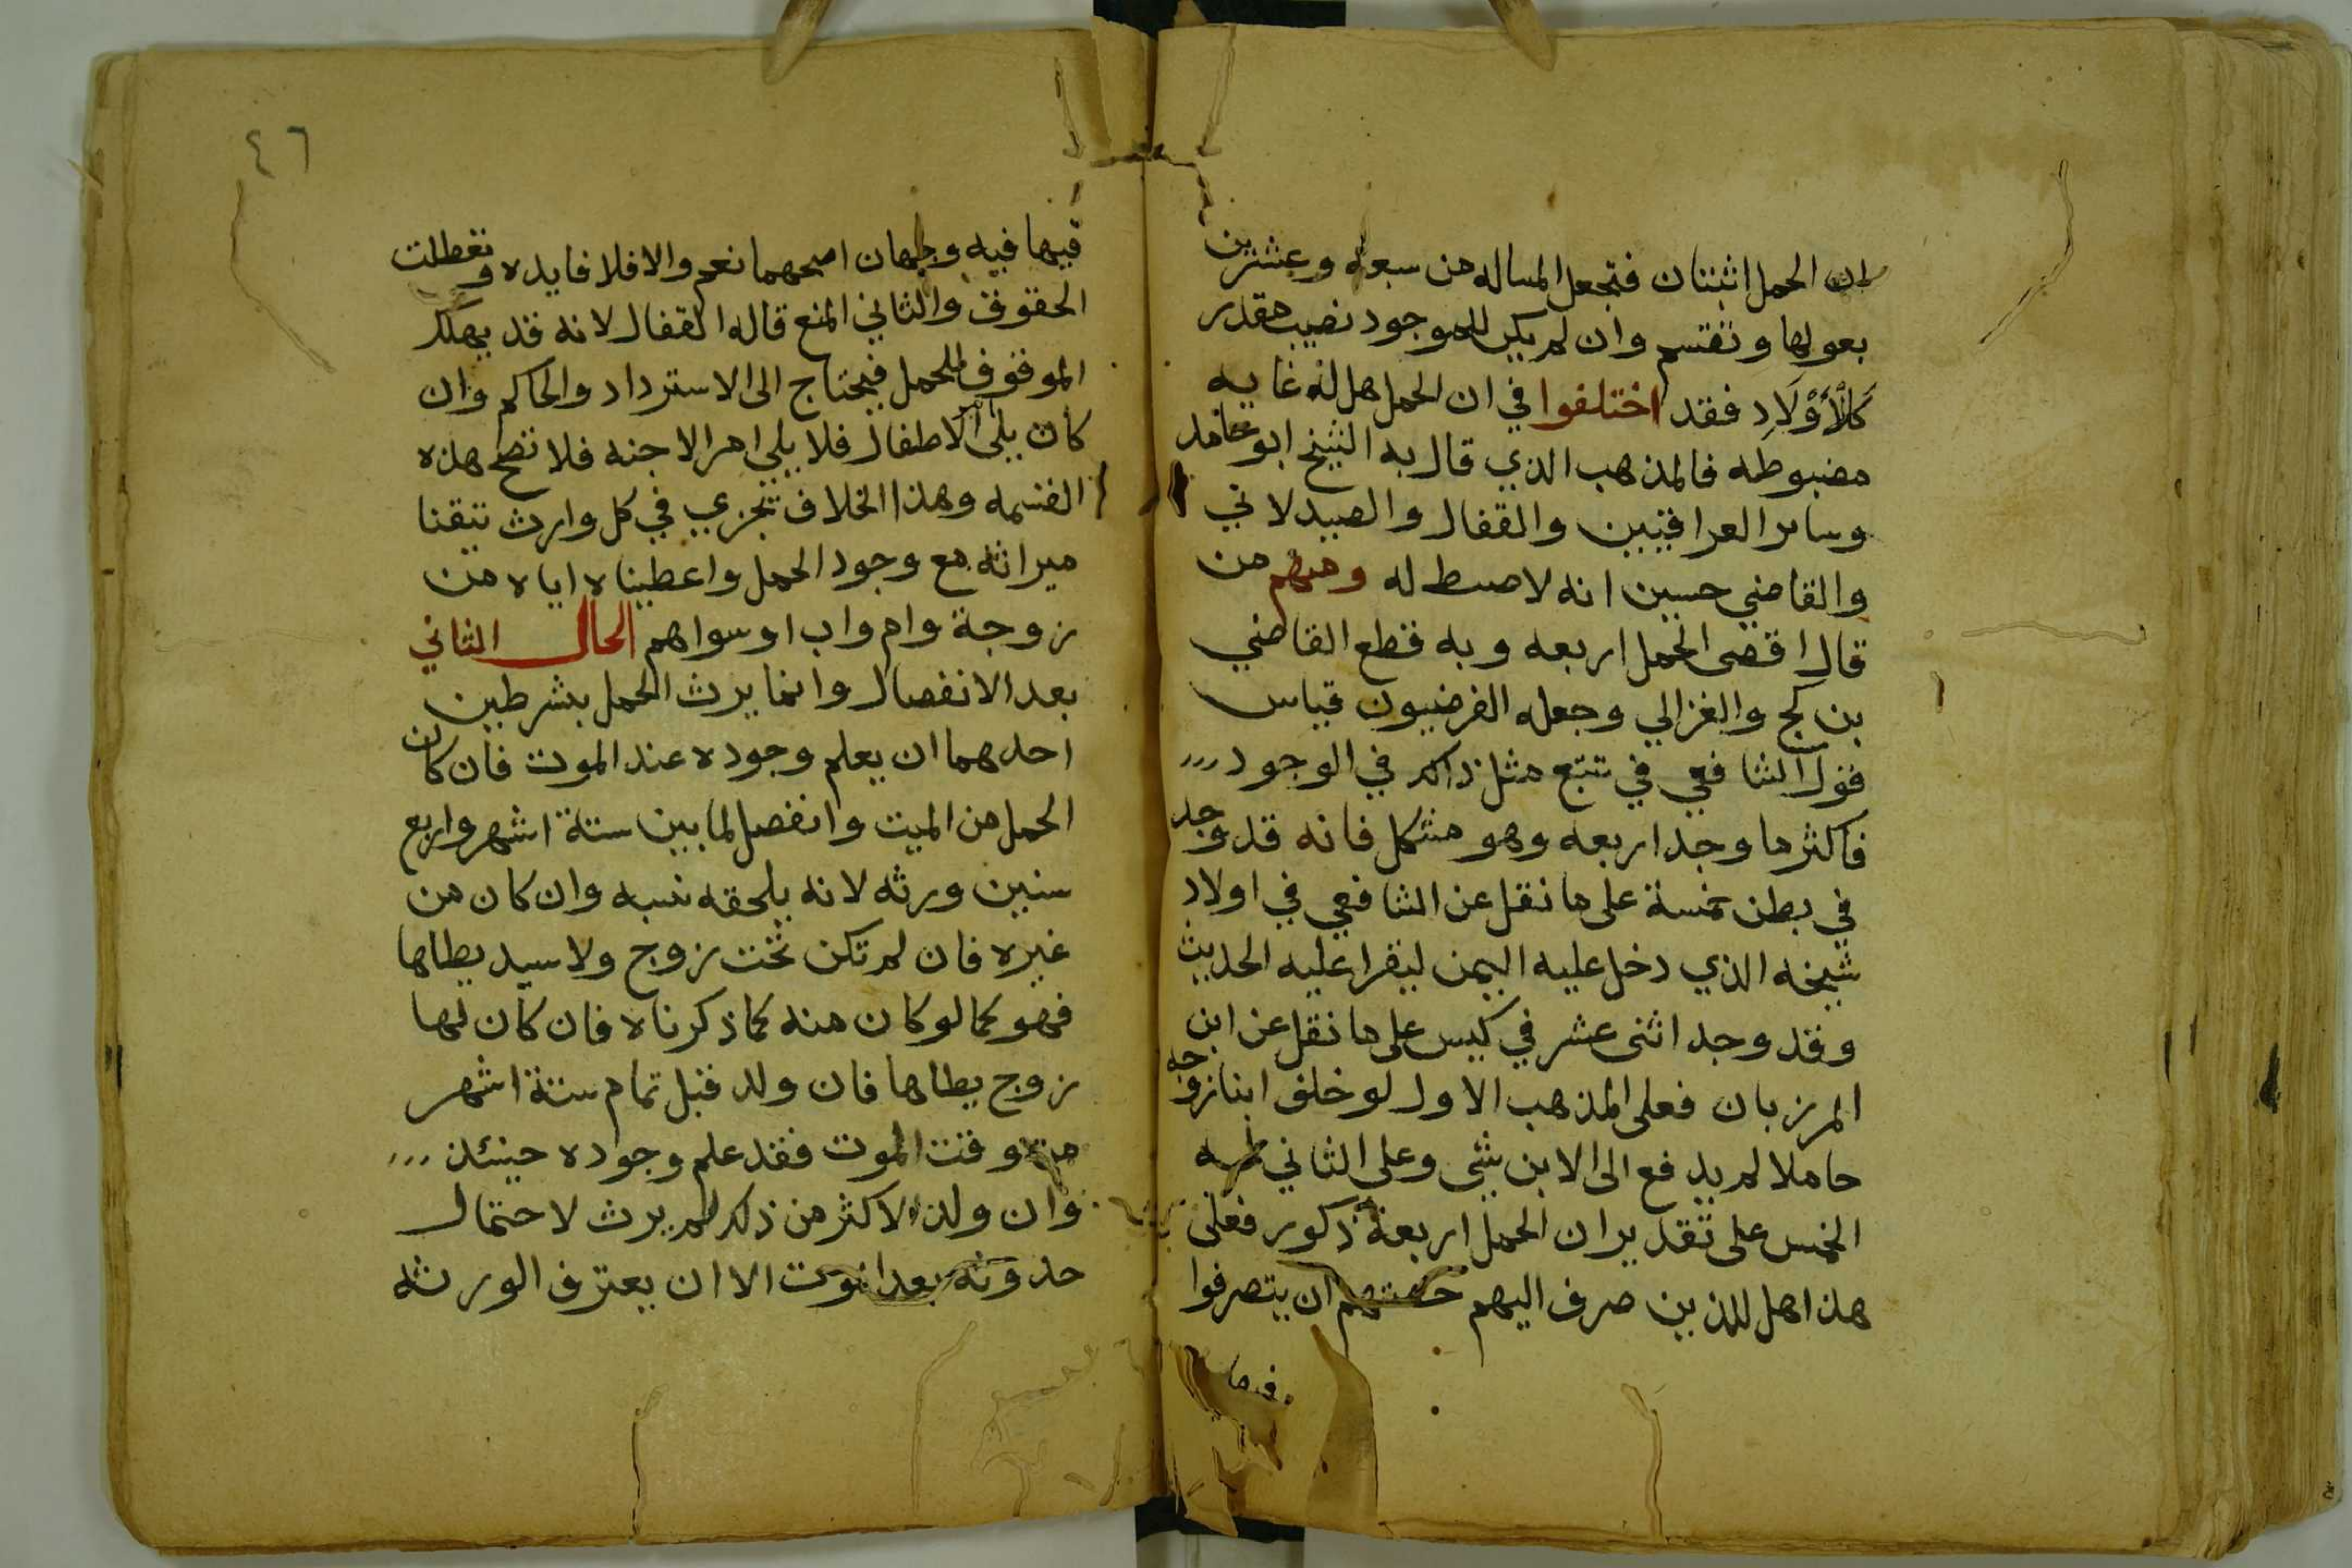 ان الحمل اثنتان فتجعل المساله من سبعه وعشرين
بعولها وتقتسم وان لم يكن للموجود نصيب مقدر
كَالأَوْلَادِ فقد اختلفوا في ان الحمل هل له غايه
مضبوطه فالمذهب الذي قال به الشيخ ابو حامد
وساير العراقيين والقفال والصيدلاني
والقاضي حسين انه لا ضبط له ومنهم من
قال اقصى الحمل اربعه وبه قطع القاضي
بن كج والغزالي وجعله الفرضيون قياس
قول الشافعي في تتبع مثل ذلك في الوجود
فاكثر ما وجد اربعه وهو مشكل فانه قد وجد
في بطن خمسة على ما نقل عن الشافعي في اولاد
شيخه الذي دخل عليه اليمن ليقرا عليه الحديث
وقد وجد اثنى عشر في كيس على ما نقل عن ابن
المرزبان فعلى المذهب الاول لو خلف ابنا زوجه
حاملا لم يدفع الى الابن شي وعلى الثاني له
الخمس على تقدير ان الحمل اربعة ذكور فعلى
هذا هل للذين صرف اليهم حصتهم ان يتصرفوا
فيها
٤٦
فيها فيه وجهان اصحهما نعم والا فلا فايده وتعطلت
الحقوق والثاني المنع قاله القفال لانه قد يهلك
الموقوف للحمل فيحتاج الى الاسترداد والحاكم وان
كان يلي امر الاطفال فلا يلي امر الاجنه فلا تصح هذه
القسمه وهذا الخلاف تجري في كل وارث تيقنا
ميراثه مع وجود الحمل واعطيناه اياه من
زوجة وام واب او سواهم الحال الثاني
بعد الانفصال وانما يرث الحمل بشرطين
احدهما ان يعلم وجوده عند الموت فان كان
الحمل من الميت وانفصل لما بين ستة اشهر واربع
سنين ورثه لانه يلحقه نسبه وان كان من
غيره فان لم تكن تحت زوج ولا سيد يطاها
فهو كما لو كان منه كما ذكرناه فان كان لها
زوج يطاها فان ولد قبل تمام ستة اشهر
من وقت الموت فقد علم وجوده حينئذ
وان ولد لاكثر من ذلك لم يرث لاحتمال
حدوثه بعد الموت الا ان يعترف الورثه